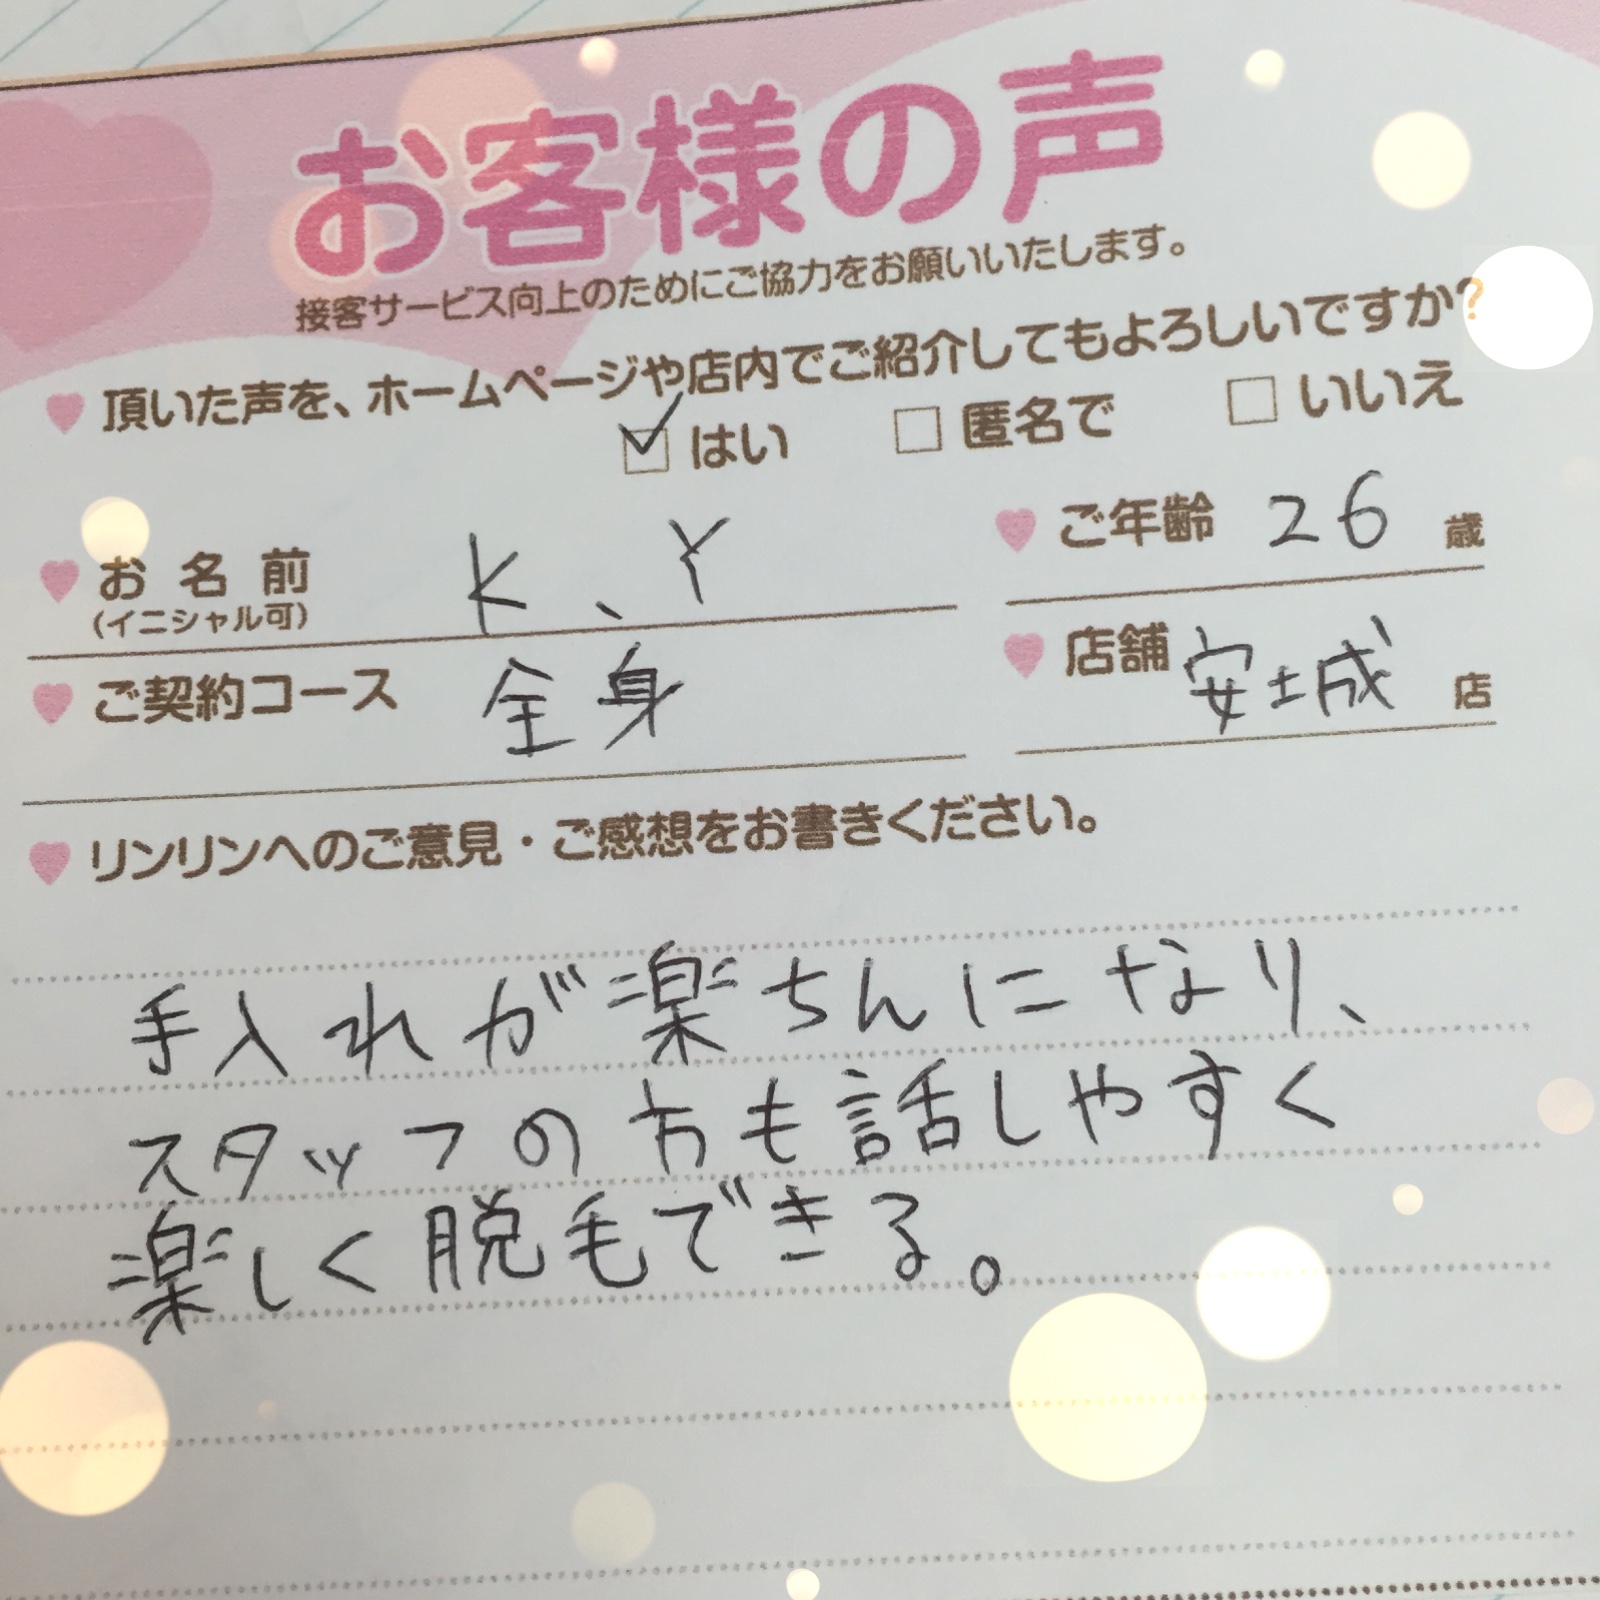 お客様の声
接客サービス向上のためにご協力をお願いいたします。
頂いた声を、ホームページや店内でご紹介してもよろしいですか?
はい 匿名で いいえ
お名前 K、Y ご年齢 26 歳
(イニシャル可)
ご契約コース 全身 店舗 安城 店
リンリンへのご意見・ご感想をお書きください。
手入れが楽ちんになり、
スタッフの方も話しやすく
楽しく脱毛できる。